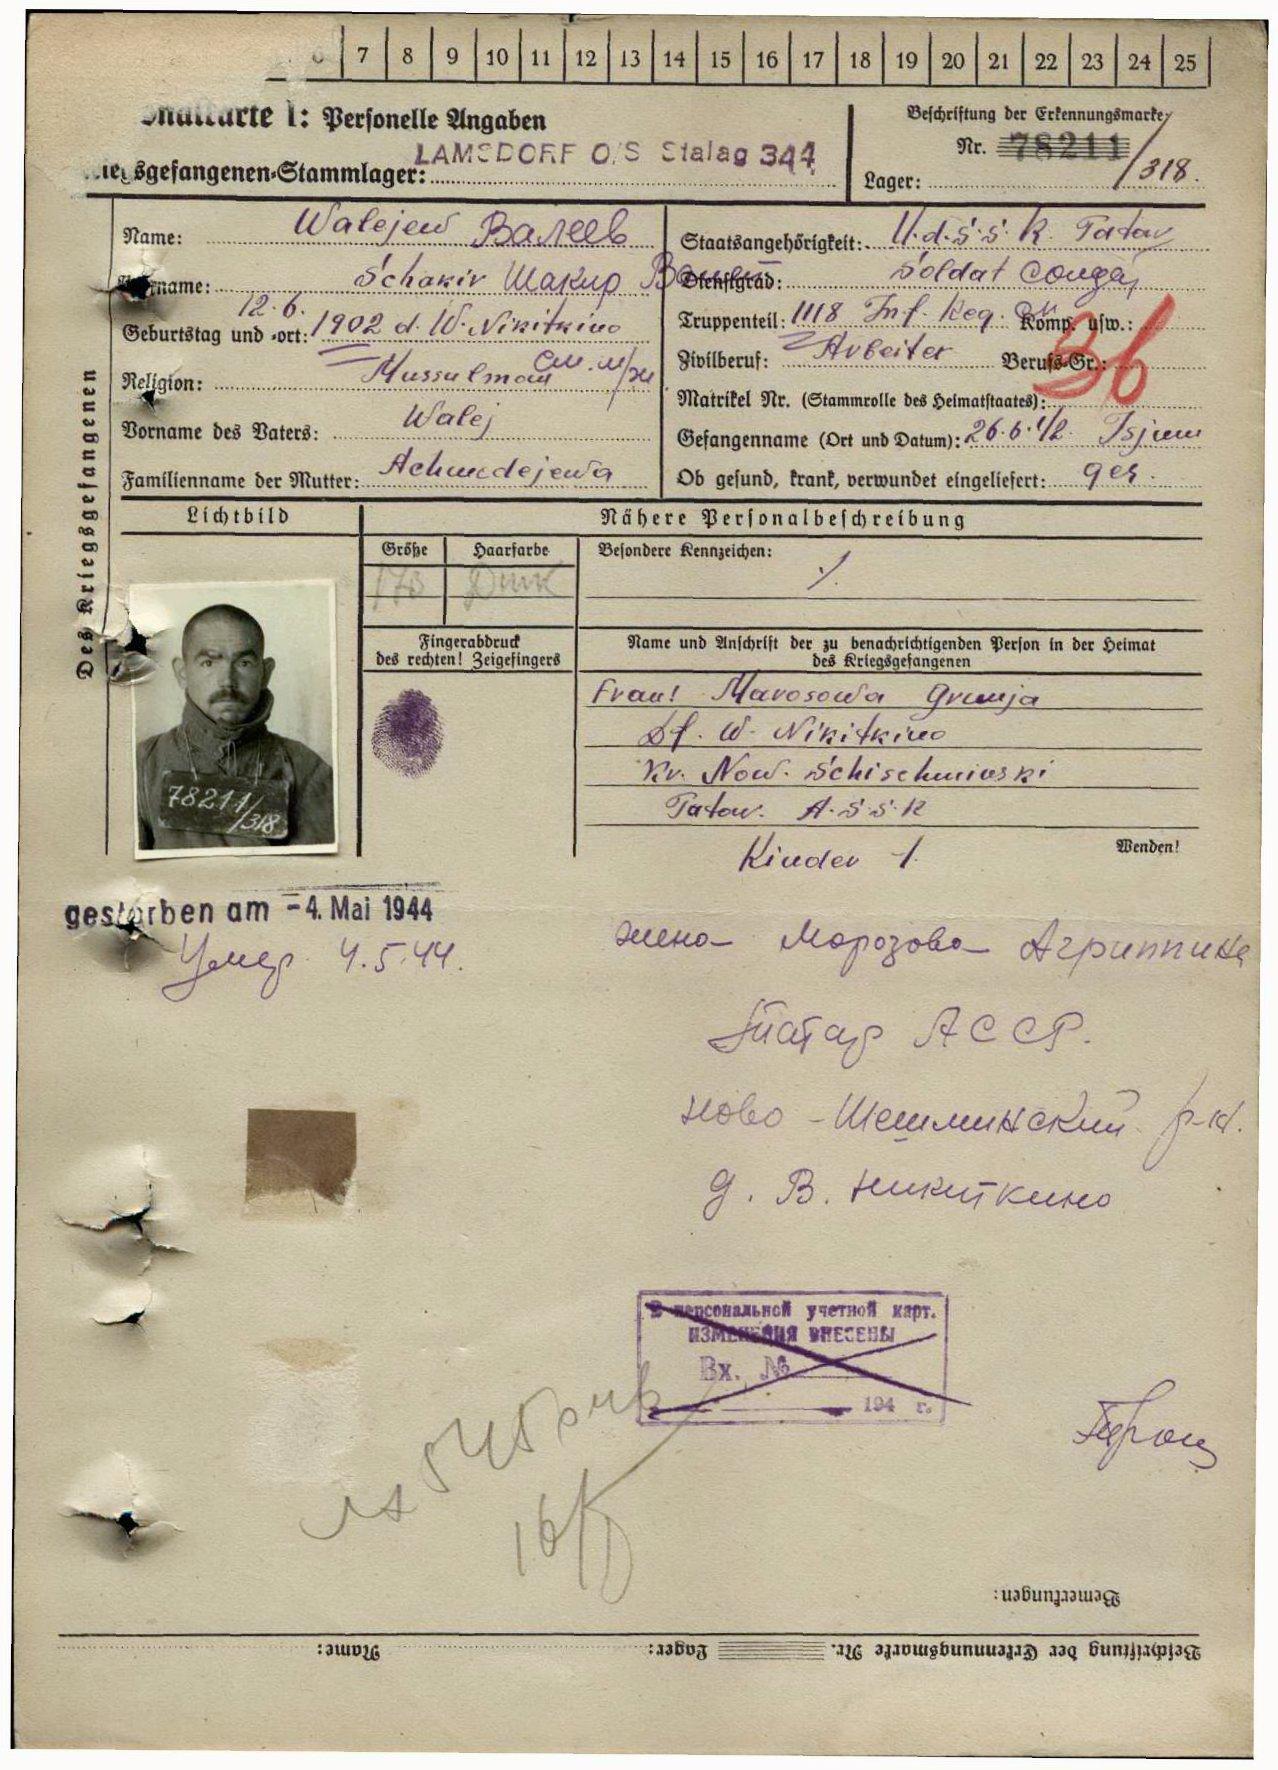 7 8 9 10 11 12 13 14 15 16 17 18 19 20 21 22 23 24 25
Personelle Angaben
Beschriftung der Erkennungsmarke
Nr. 78211/318.
LAMSDORF O/S Stalag 344
Kriegsgefangenen-Stammlager:
Lager:
Name: Walejew Валеев
Staatsangehörigkeit: U.d.S.S.R. Tatar
Vorname: Schakir Шакир
Dienstgrad: Soldat
12.6.
Geburtstag und -ort: 1902 d. W. Nikitkino
Truppenteil: 1118 Inf. Reg. Komp. usw.:
Religion: Musulman
Zivilberuf: Arbeiter Berufs-Gr.:
36
Matrikel Nr. (Stammrolle des Heimatstaates):
Vorname des Vaters: Walej
Gefangenname (Ort und Datum): 26.6.42. Isjum
Familienname der Mutter: Achmedejewa
Ob gesund, krank, verwundet eingeliefert: ges.
Des Kriegsgefangenen
Lichtbild
Nähere Personalbeschreibung
Größe
Haarfarbe
Besondere Kennzeichen:
Dunk
78211/318
Fingerabdruck
des rechten! Zeigefingers
Name und Anschrift der zu benachrichtigenden Person in der Heimat
des Kriegsgefangenen
Frau: Marosowa Grunja
Df. W. Nikitkino
Kr. Now. Schischminski
Tatar. A.S.S.R
Kinder 1.
Wenden!
gestorben am -4. Mai 1944
Умер 4.5.44.
жена Морозова Агриппина
Татар АССР.
Ново-Шешминский р-н.
д. В. Никиткино
В персональной учетной карт.
ИЗМЕНЕНИЯ ВНЕСЕНЫ
Вх. №
194 г.
Bemerkungen:
Beschriftung der Erkennungsmarke Nr. Lager: Name: